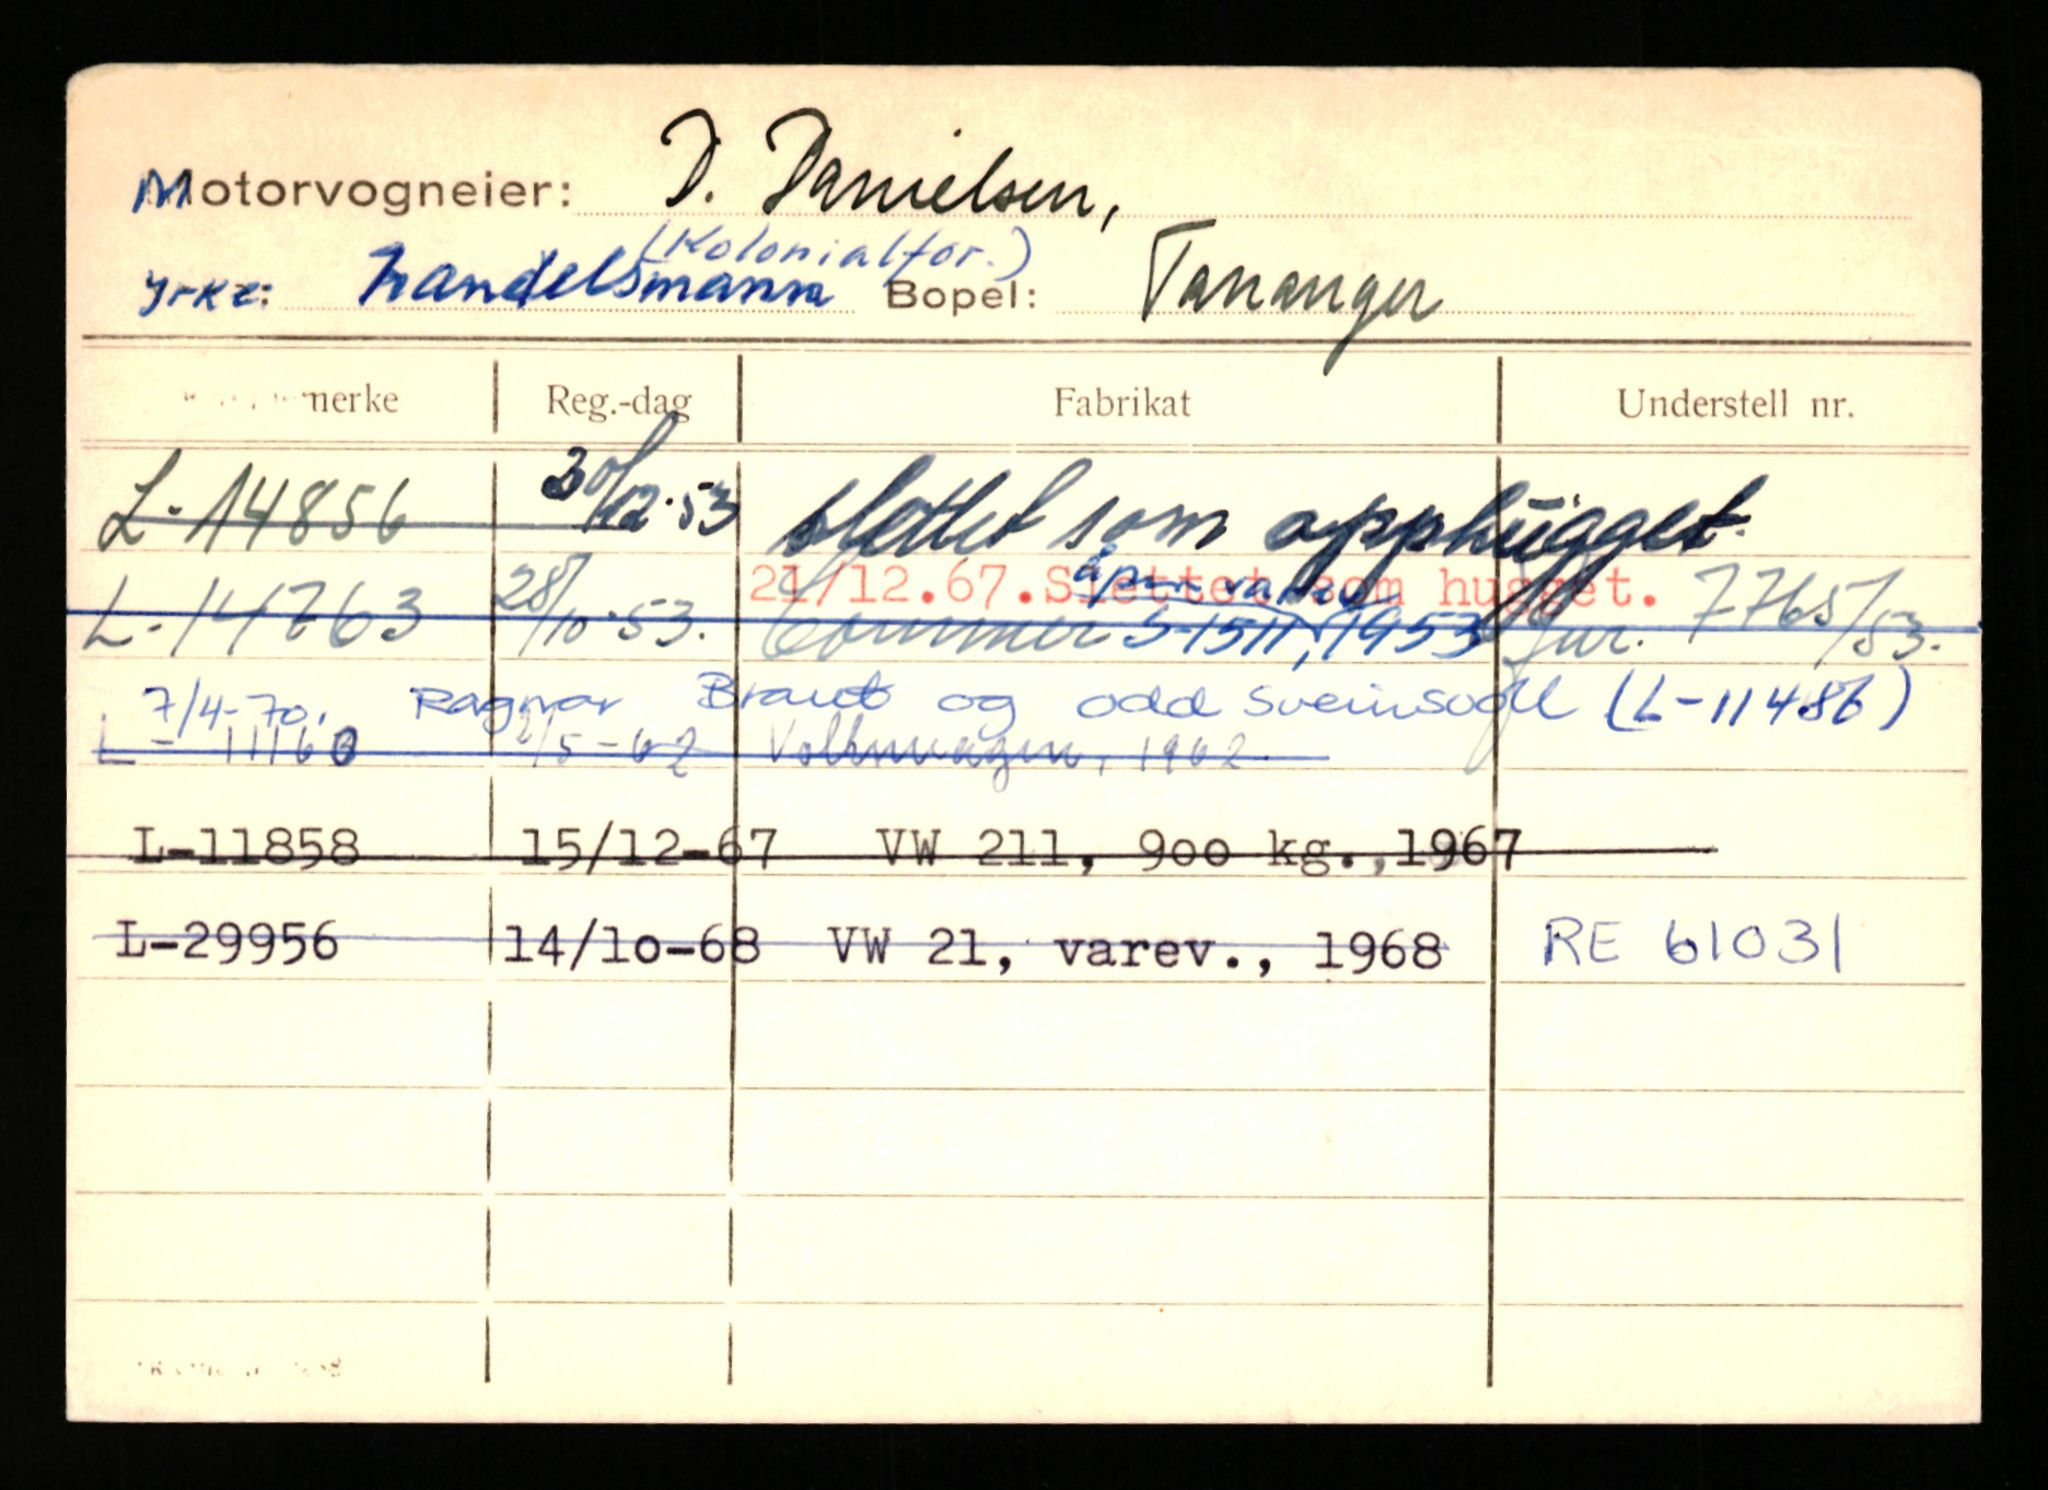 Motorvogneier: D. Danielsen,
(Kolonialfor.)
Yrke: handelsmann Bopel: Tananger
merke Reg.-dag Fabrikat Understell nr.
L-14856 30/12-53 slettet som opphugget.
21/12.67. Slettet som hugget.
åpen varev.
L-14763 28/10-53. Commer S-1511, 1953 Jnr. 7765/53.
7/4-70. Ragnar Braut og Odd Sveinsvoll (L-11486)
L-11160 2/5-62 Volkswagen, 1962.
L-11858 15/12-67 VW 211, 9oo kg., 1967
L-29956 14/1o-68 VW 21, varev., 1968 RE 61031